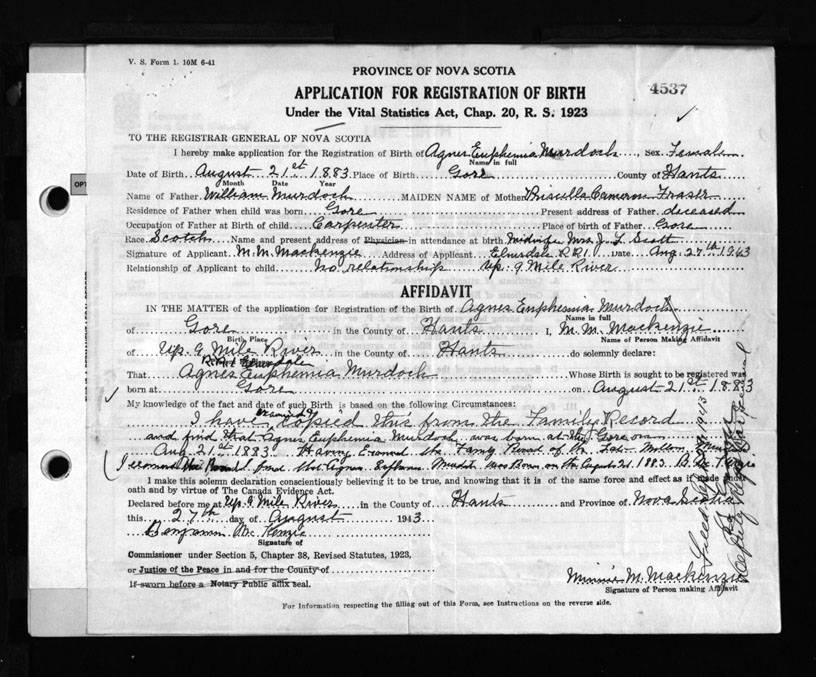 V. S. Form 1. 10M 6-41
PROVINCE OF NOVA SCOTIA
APPLICATION FOR REGISTRATION OF BIRTH
4537
Under the Vital Statistics Act, Chap. 20, R. S. 1923
TO THE REGISTRAR GENERAL OF NOVA SCOTIA
I hereby make application for the Registration of Birth of Agnes Euphemia Murdoch, Sex Female
Name in full
Date of Birth August 21st 1883 Place of Birth Gore County of Hants
Month Date Year
Name of Father William Murdoch MAIDEN NAME of Mother Priscilla Cameron Fraser
Residence of Father when child was born Gore Present address of Father deceased
Occupation of Father at Birth of child Carpenter Place of birth of Father Gore
Race Scotch Name and present address of Physician in attendance at birth midwife Mrs J. L. Scott
Signature of Applicant M. M. Mackenzie Address of Applicant Elmsdale R R 1 Date Aug. 27th 1943
Relationship of Applicant to child no relationship Up. 9 Mile River
AFFIDAVIT
IN THE MATTER of the application for Registration of the Birth of Agnes Euphemia Murdoch
Name in full
of Gore in the County of Hants I, M. M. Mackenzie
Birth Place Name of Person Making Affidavit
of Up. 9 Mile River in the County of Hants do solemnly declare:
Elmsdale
That Agnes Euphemia Murdoch Whose Birth is sought to be registered was
born at Gore on August 21st 1883
My knowledge of the fact and date of such Birth is based on the following Circumstances:
I have examined & copied this from the Family Record
and find that Agnes Euphemia Murdoch was born at Gore on
Aug 21st 1883. Having the Family Record of
I find that Agnes Euphemia Murdoch was Born on the August 21. 1883.
I make this solemn declaration conscientiously believing it to be true, and knowing that it is of the same force and effect as if made under
oath and by virtue of The Canada Evidence Act.
Declared before me at Up. 9 Mile River in the County of Hants and Province of Nova Scotia
this 27th day of August 1943
Benjamin Mc Kenzie
Signature of
Commissioner under Section 5, Chapter 38, Revised Statutes, 1923,
or Justice of the Peace in and for the County of
If sworn before a Notary Public affix seal.
Minnie M. Mackenzie
Signature of Person making Affidavit
For Information respecting the filling out of this Form, see Instructions on the reverse side.